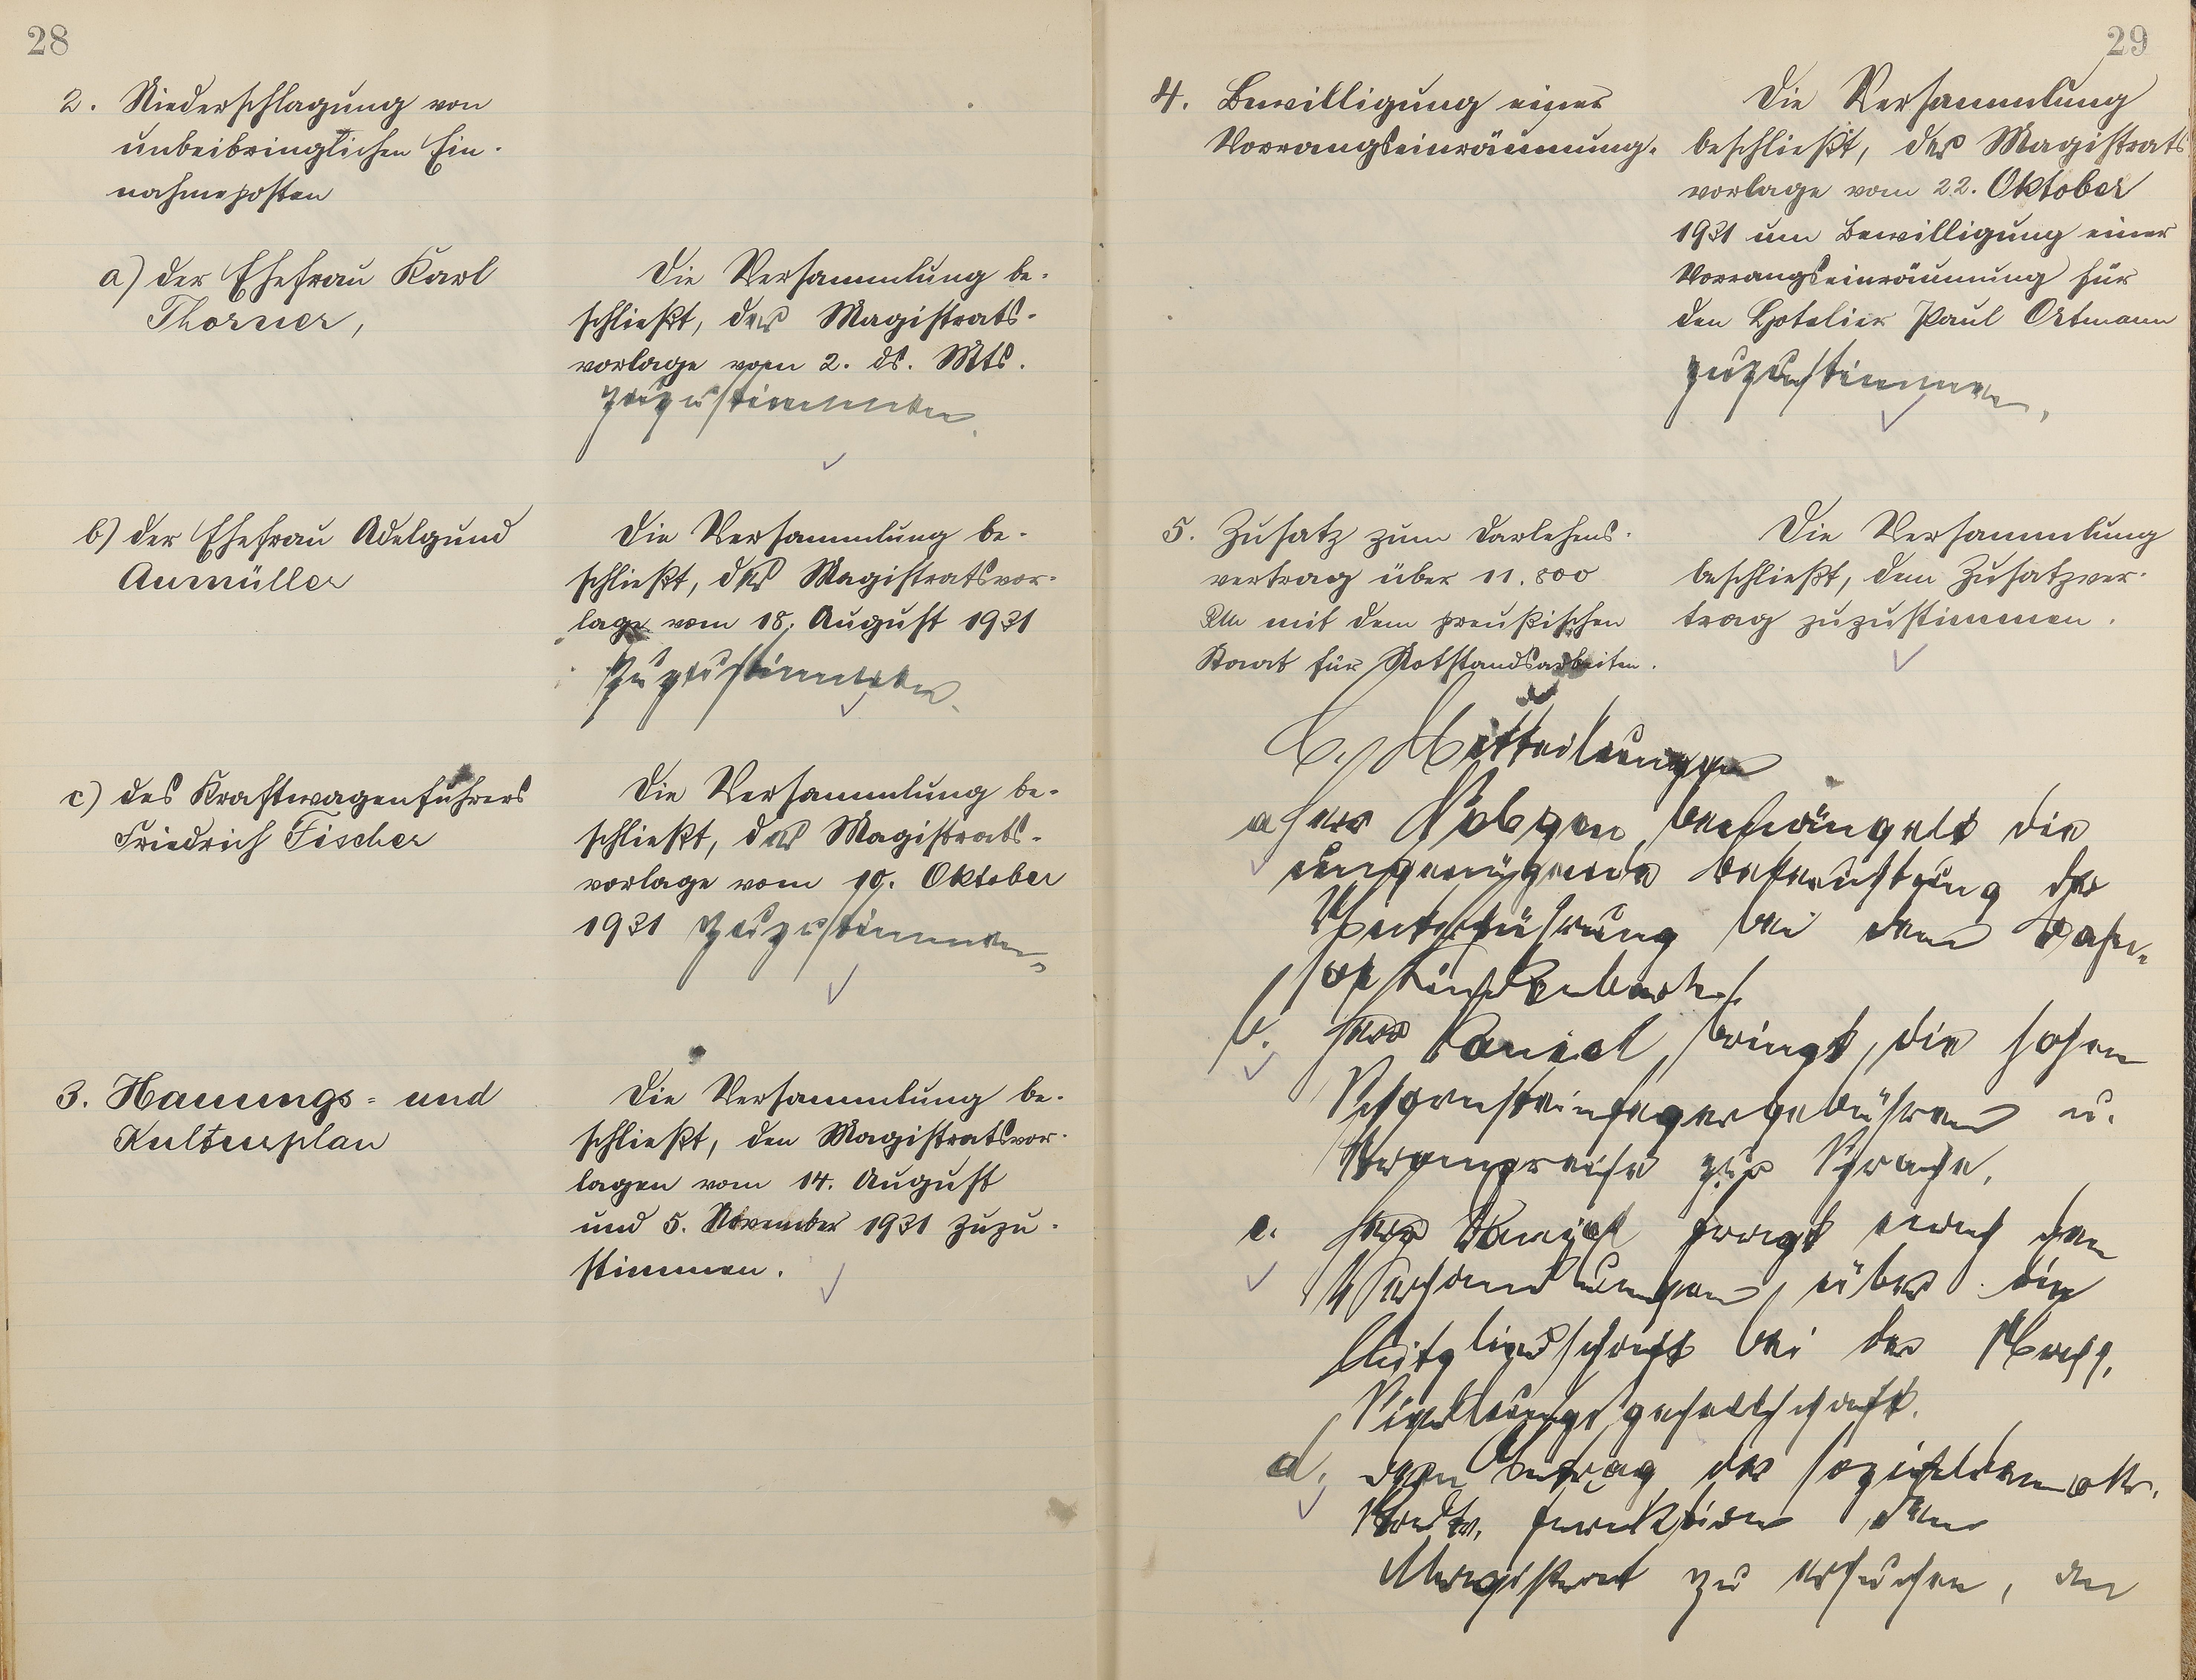 28
2. Niederschlagung von
unbeibringlichen Ein-
nahmeposten
a) der Ehefrau Karl
Thorner,
Die Versammlung be-
schließt, der Magistrats-
vorlage vom 2. ds. Mts.
zuzustimmen.
b) der Ehefrau Adelgund
Aumüller
Die Versammlung be-
schließt, der Magistratsvor-
lage vom 18. August 1931
zuzustimmen.
c) des Kraftwagenführers
Friedrich Fischer
Die Versammlung be-
schließt, der Magistrats-
vorlage vom 10. Oktober
1931 zuzustimmen.
3. Hauungs- und
Kulturplan
Die Versammlung be-
schließt, den Magistratsvor-
lagen vom 14. August
und 5. November 1931 zuzu-
stimmen.
29
4. Bewilligung einer
Vorrangseinräumung.
Die Versammlung
beschließt, der Magistrats
vorlage vom 22. Oktober
1931 um Bewilligung einer
Vorrangseinräumung für
den Hotelier Paul Ortmann
zuzustimmen.
5. Zusatz zum Darlehens-
vertrag über 11.800
RM mit dem preußischen
Staat für Notstandsarbeiten.
Die Versammlung
beschließt, dem Zusatzver-
trag zuzustimmen.
Mitteilungen
a Herr bemängelt die
ungenügende Beleuchtung der
bei dem Bahn-
hof
b. Herr Daniel bringt die hohen
Schornsteinfegergebühren u.
Strompreise zur Sprache.
c. Herr Daniel fragt nach den
Verhandlungen über die
Mitgliedschaft bei der
Siedlungsgesellschaft.
d. dem Antrag der sozialdemokr.
Stadtv. Fraktion den
Magistrat zu ersuchen, an